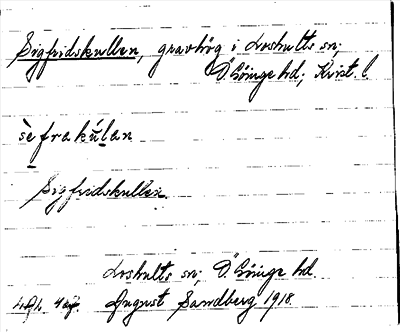 Sigfridskullen, gravhög i Loshults sn;
Ö. Göinge hd; Krist. l.
sèfrakúlan
Sigfridskullen.
Loshults sn; Ö. Göinge hd
August Sandberg 1918